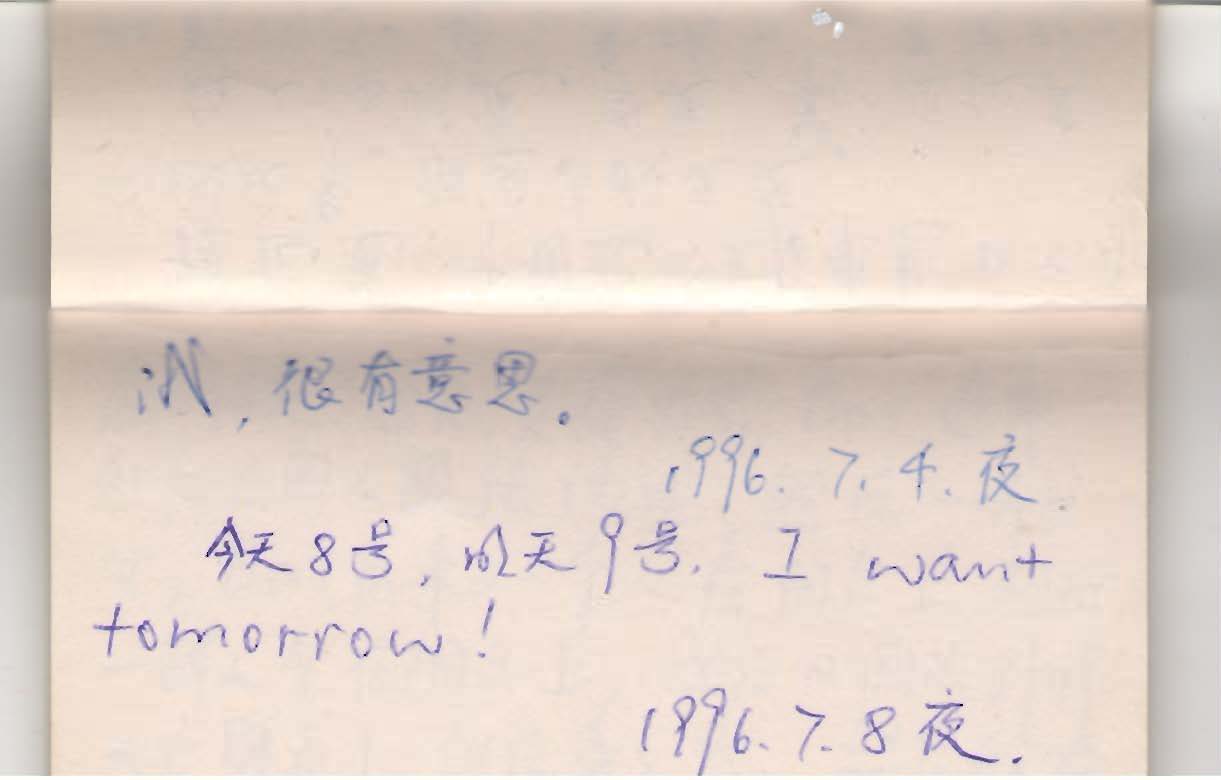 ，很有意思。
1996.7.4.夜.
今天8号，明天9号. I want
tomorrow!
1996.7.8夜.